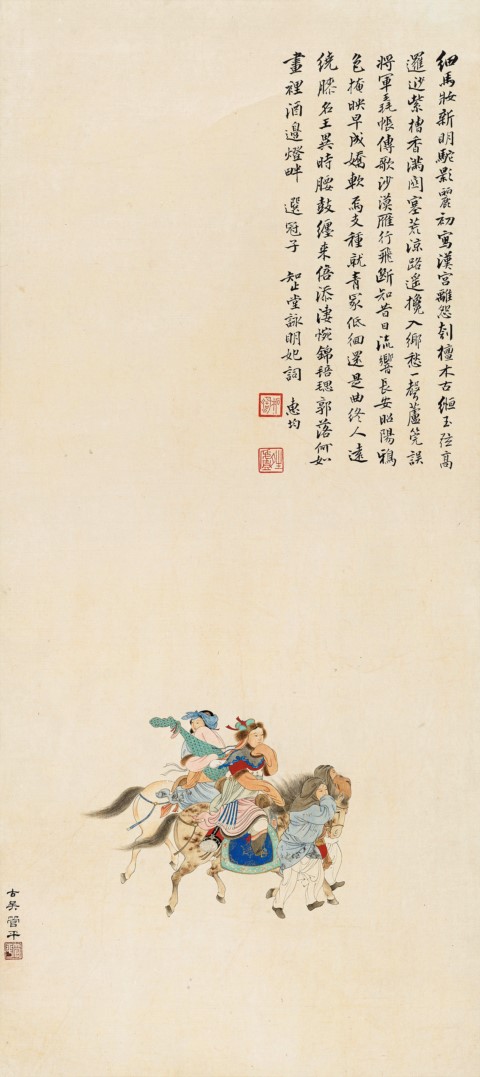 細馬妝新明駝影麗初寫漢宮離怨刳檀木古緪玉弦高
邏逤紫檀香滿關塞荒涼路遙攙入鄉愁一聲蘆筦誤
將軍毳帳傳歌沙漠雁行飛斷知昔日流響長安昭陽鴉
色掩映早成嬌軟焉支種就青冢低佪還是曲終人遠
繞膝名王異時腰鼓纏來倍添淒惋錦琵琶郭落何如
畫裡酒邊燈畔 選冠子 知止堂詠明妃詞 惠均
古吳管平